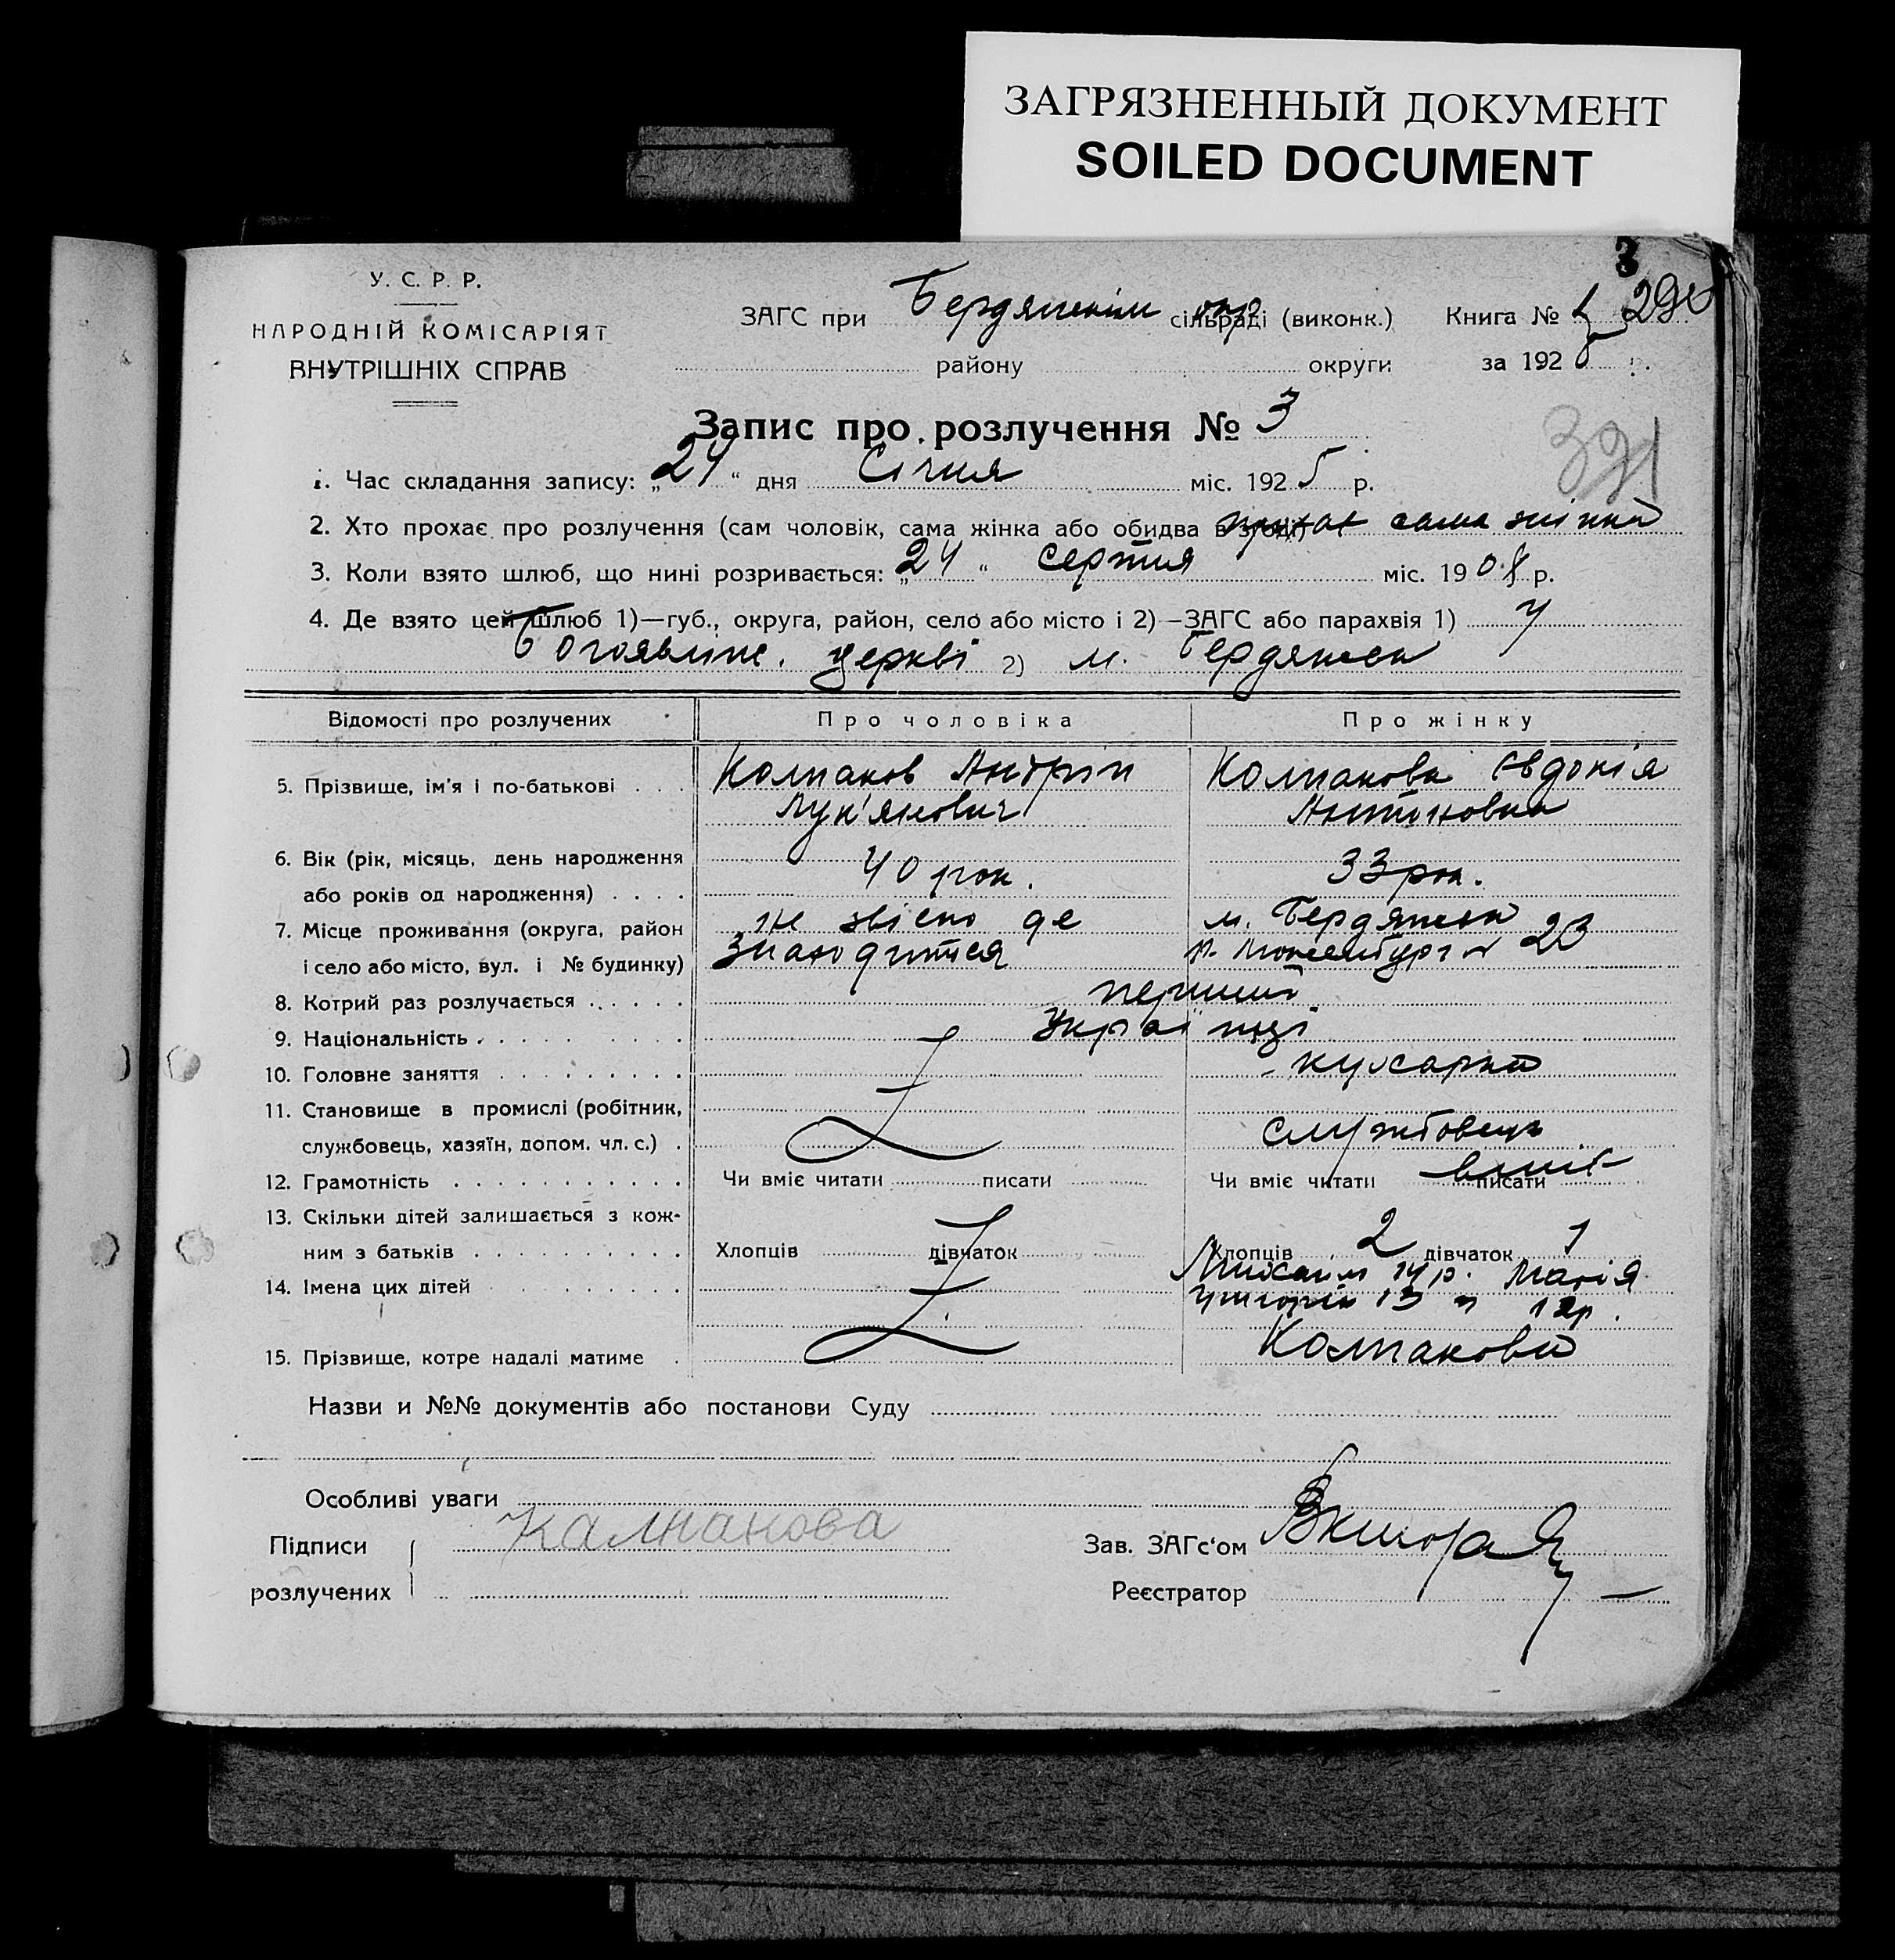 ЗАГРЯЗНЕННЫЙ ДОКУМЕНТ
SOILED DOCUMENT
3
У. С. Р. Р.
НАРОДНІЙ КОМІСАРІЯТ
ВНУТРІШНІХ СПРАВ
ЗАГС при Бердянськім окр сільраді (виконк.) Книга № 290
району округи за 1925 р.
Запис про розлучення № 3
321
1. Час складання запису: „24“ дня Січня міс. 1925 р.
2. Хто прохає про розлучення (сам чоловік, сама жінка або обидва в згоді) прохає сама жінка
3. Коли взято шлюб, що нині розривається: „24“ серпня міс. 1908 р.
4. Де взято цей шлюб 1)—губ., округа, район, село або місто і 2)—ЗАГС або парахвія 1) у
Богоявлінс. церкві 2) м. Бердянськ
Відомості про розлучених Про чоловіка Про жінку
5. Прізвище, ім'я і по-батькові Колпаков Андрій Колпакова Євдокія
Лук'янович Антоновна
6. Вік (рік, місяць, день народження
або років од народження) 40 рок. 33 рок.
7. Місце проживання (округа, район не звісно де м. Бердянськ
і село або місто, вул. і № будинку) знаходиться 23
8. Котрий раз розлучається перший
9. Національність Українці
10. Головне заняття кухарка
11. Становище в промислі (робітник,
службовець, хазяїн, допом. чл. с.) службовець
12. Грамотність Чи вміє читати писати Чи вміє читати писати вміє
13. Скільки дітей залишається з кож-
ним з батьків Хлопців дівчаток Хлопців 2 дівчаток 1
14. Імена цих дітей Михаил 14 р. Марія
Григорій 13 " 12 р.
15. Прізвище, котре надалі матиме Колпакова
Назви и №№ документів або постанови Суду
Особливі уваги
Підписи Калпакова Зав. ЗАГс'ом
розлучених Реєстратор